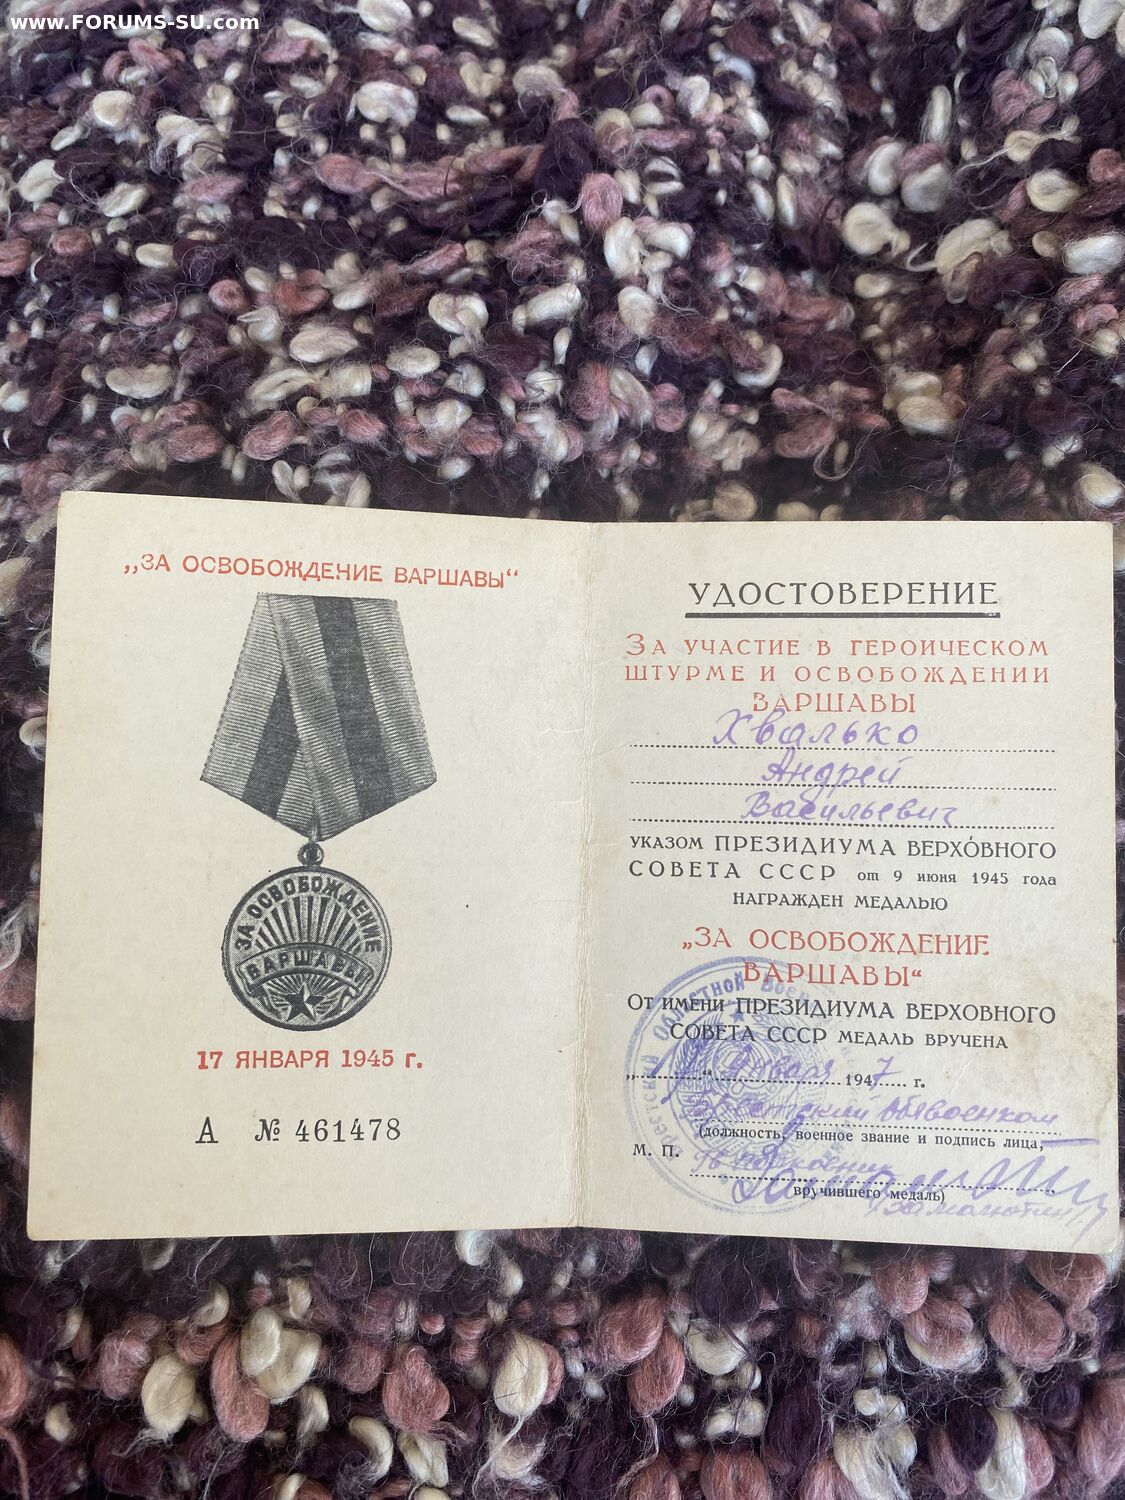 www.FORUMS-SU.com
„ЗА ОСВОБОЖДЕНИЕ ВАРШАВЫ“
ЗА ОСВОБОЖДЕНИЕ
ВАРШАВЫ
17 ЯНВАРЯ 1945 г.
А № 461478
УДОСТОВЕРЕНИЕ
ЗА УЧАСТИЕ В ГЕРОИЧЕСКОМ
ШТУРМЕ И ОСВОБОЖДЕНИИ
ВАРШАВЫ
Хвалько
Андрей
Васильевич
УКАЗОМ ПРЕЗИДИУМА ВЕРХОВНОГО
СОВЕТА СССР от 9 июня 1945 года
НАГРАЖДЕН МЕДАЛЬЮ
„ЗА ОСВОБОЖДЕНИЕ
ВАРШАВЫ“
От имени ПРЕЗИДИУМА ВЕРХОВНОГО
СОВЕТА СССР МЕДАЛЬ ВРУЧЕНА
января 1947 г.
Облвоенком
(должность, военное звание и подпись лица,
М. П.
вручившего медаль)
Брестский Областной Воен